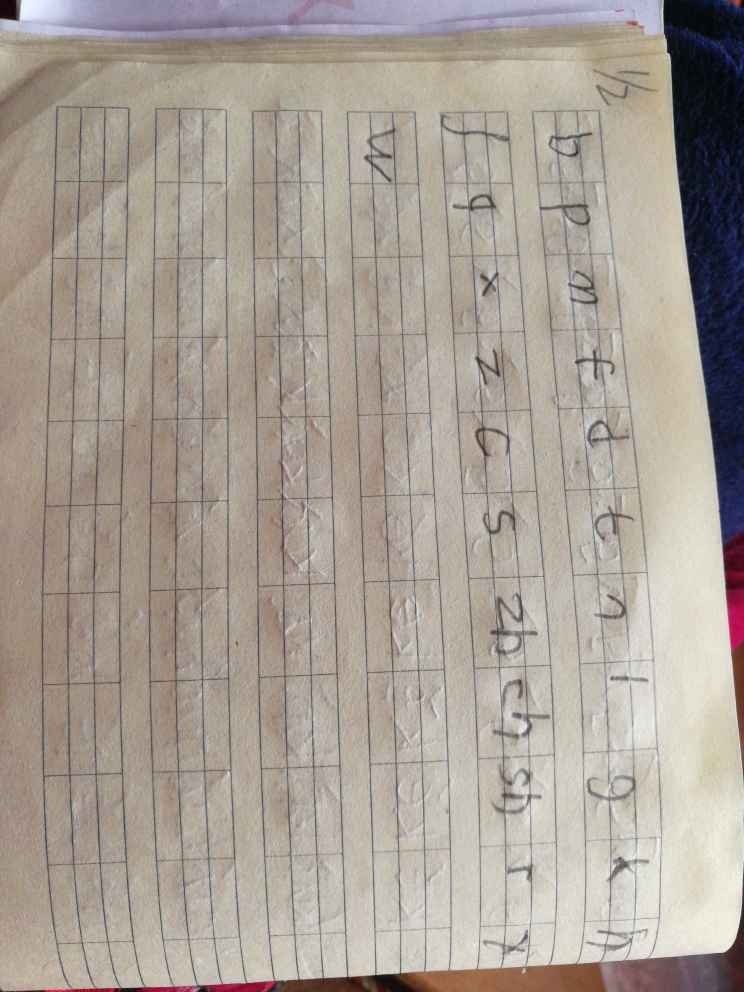 2/1
b p m f d t n l g k h
j q x z c s zh ch sh r y
w